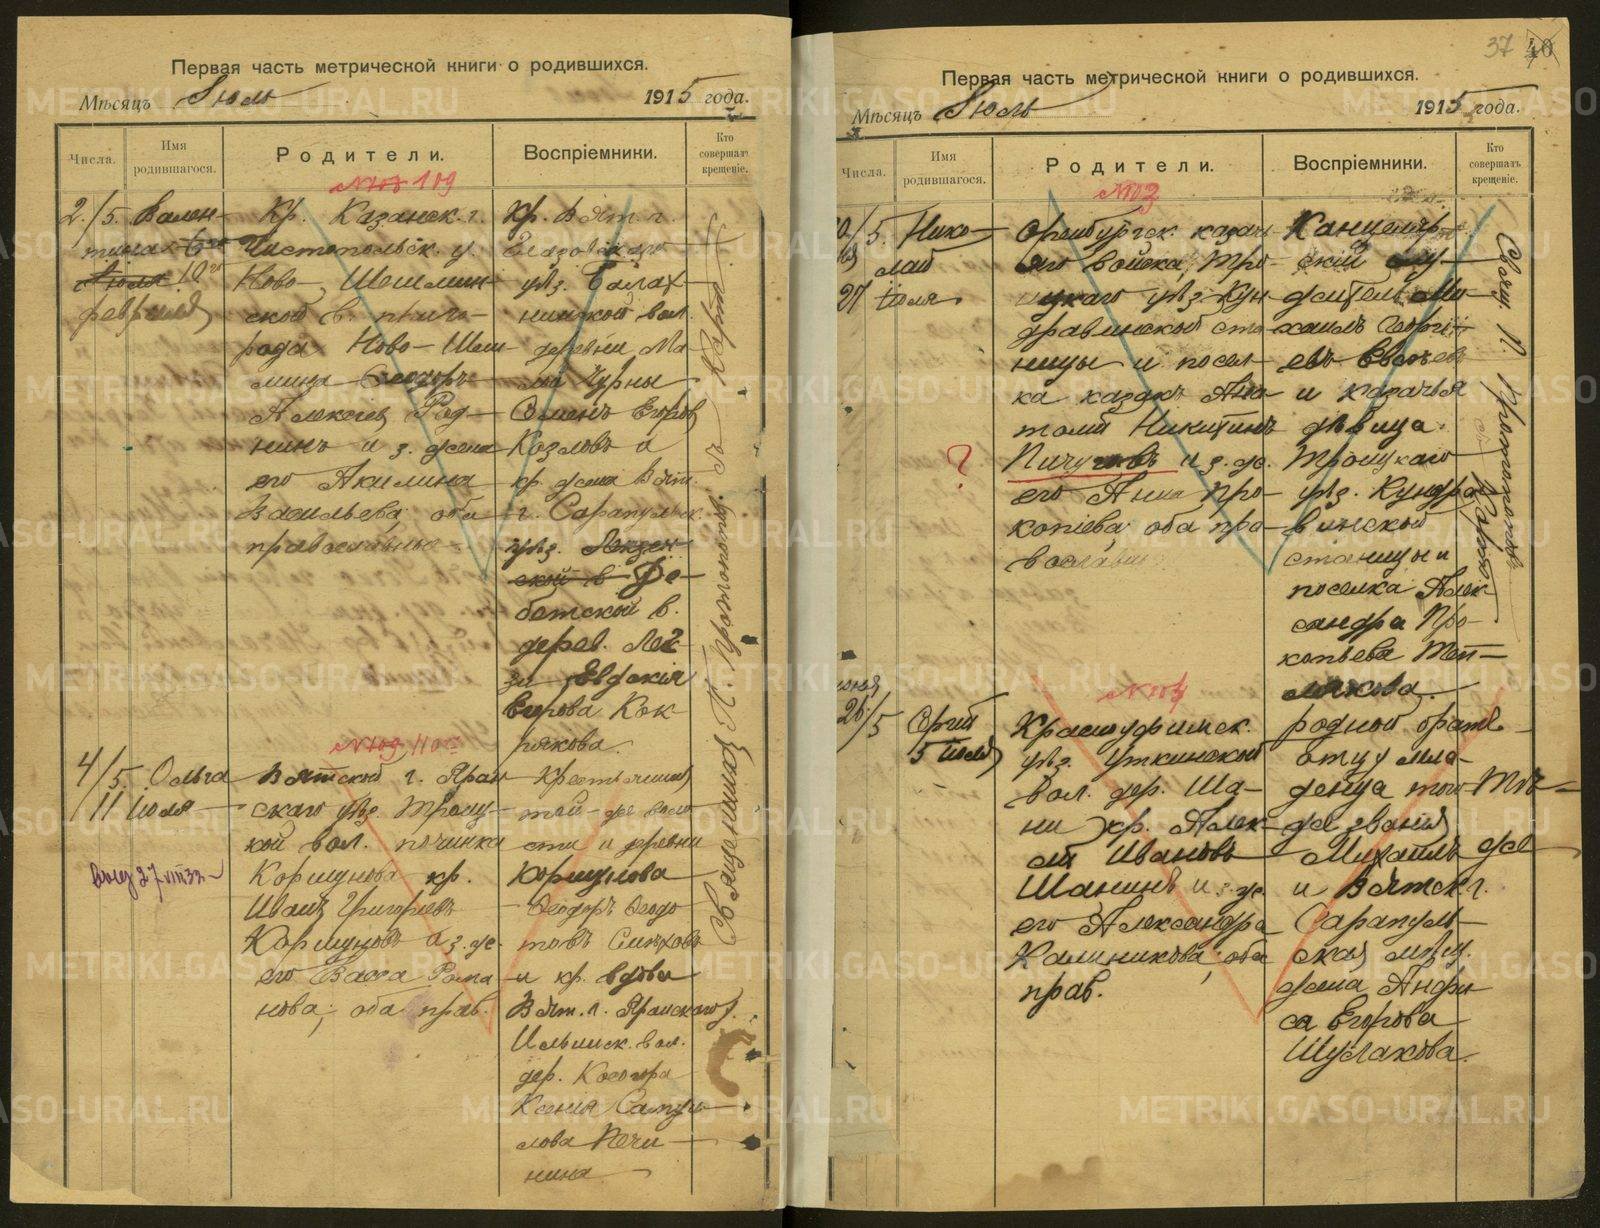 Первая часть метрической книги о родившихся.
Мѣсяцъ Июль 1915 года.
Числа.
Имя родившагося.
Родители.
Воспріемники.
Кто совершалъ крещеніе.
№ 109
2/5. Вален-
тина
10го
февраля
Кр. Казанск. г.
Чистопольск. у.
Ново-Шешмин-
ской в. приго-
рода Ново-Шеш-
минка Ѳеодоръ
Алексѣев Род-
нинъ и з. жена
его Акилина
Васильева; оба
православные
Кр. Вят. г.
Глазовскаго
уѣз. Балах-
нинской вол.
деревни Ма-
Чурны
Семенъ Егоров
Козловъ и
кр. жена Вят.
г. Сарапульск.
уѣз.
ской в. Де-
бетской в.
дерев.
Евдокія
Егорова Кок-
рякова.
Священникъ П. Протопопов.
№ 109 110
4/5. Ольга
11 июля
27 VIII 32
Вятской г. Яран
скаго уѣз. Троиц-
кой вол. починка
Коршунова кр.
Иванъ Григорьевъ
Коршуновъ и з. же.
его Васса Рома
нова; оба прав.
Крестьянинъ
той-же воло
сти и деревни
Коршунова
Ѳеодоръ Ѳеодо
товъ Смѣховъ
и кр. вдова
Вят. г. Яранскаго у.
Ильинск. вол.
дер. Косогора
Ксенія Самуи
лова Печи
нина
37 40
Первая часть метрической книги о родившихся.
Мѣсяцъ Июль 1915 года.
Числа.
Имя родившагося.
Родители.
Воспріемники.
Кто совершалъ крещеніе.
№ 103
/5. Нико-
лай
27 июля
Оренбургск. казачь
яго войска, Тро-
ицкаго уѣз. Кун
дравинской ста-
ницы и посел-
ка казакъ Ана-
толій Никитинъ
Пичуговъ и з. же.
его Анна Про-
копіева; оба пра-
вославные
?
Канцеляр
скій слу-
житель Ми-
хаилъ Георгі-
евъ Евсѣевъ
и казачья
дѣвица
Троицкаго
уѣз. Кундра
винской
станицы и
поселка Алек
сандра Про-
копьева Теп-
лякова.
Свящ. П. Протопоповъ
№ 104
июня
26/5
Сергій
5 июля
Красноуфимск.
уѣз. Уткинской
вол. дер. Ша-
ни кр. Алек-
сѣй Ивановъ
Шанинъ и з. же.
его Александра
Калиникова; оба
прав.
родной братъ
отцу мла-
денца того-
же званія
Михаилъ
и Вятск. г.
Сарапуль-
ская мѣщ.
жена Анфи-
са Егорова
Шуслакова.
Тѣ-
же
METRIKI.GASO-URAL.RU